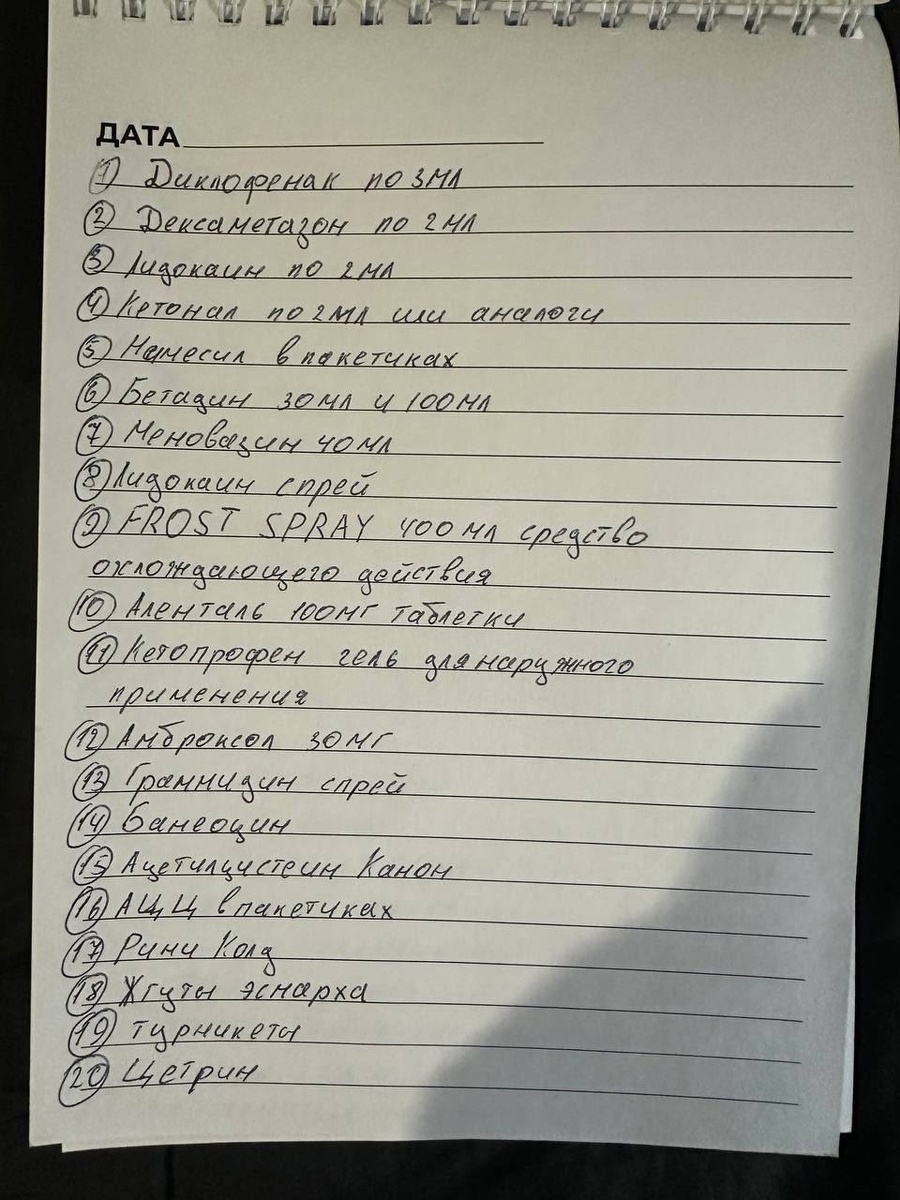 ДАТА
1 Диклофенак по 3мл
2 Дексаметазон по 2мл
3 Лидокаин по 2мл
4 Кетонал по 2мл или аналоги
5 Немесил в пакетиках
6 Бетадин 30мл и 100мл
7 Меновазин 40мл
8 Лидокаин спрей
9 FROST SPRAY 400мл средство
охлождающего действия
10 Аленталь 100мг таблетки
11 Кетопрофен гель для наружного
применения
12 Амброксол 30мг
13 Граммидин спрей
14 Банеоцин
15 Ацетилцистеин Канон
16 АЦЦ в пакетиках
17 Рини Колд
18 Жгуты эснарха
19 турникеты
20 Цетрин